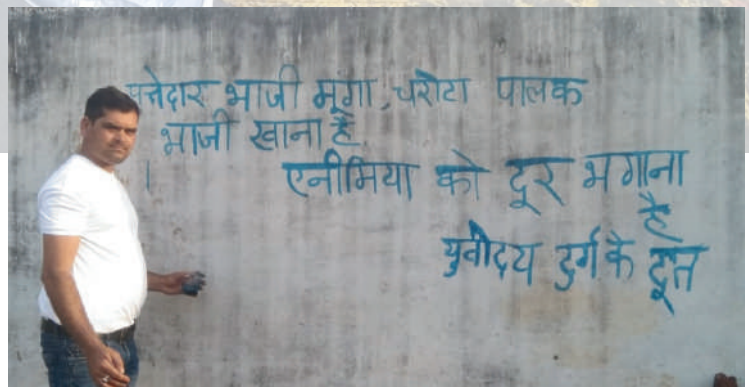 पत्तेदार भाजी मूंगा, चरोटा पालक
भाजी खाना है
एनीमिया को दूर भगाना
है
युवोदय दुर्ग के दूत